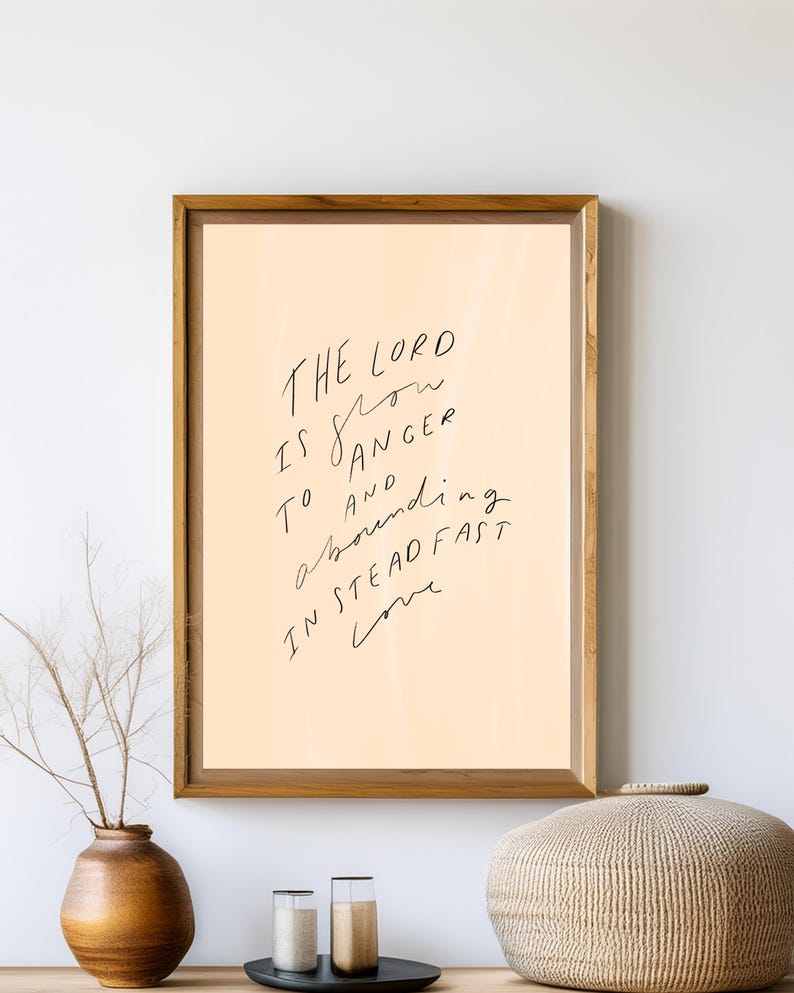 THE LORD
IS slow
TO ANGER
AND
abounding
IN STEADFAST
love